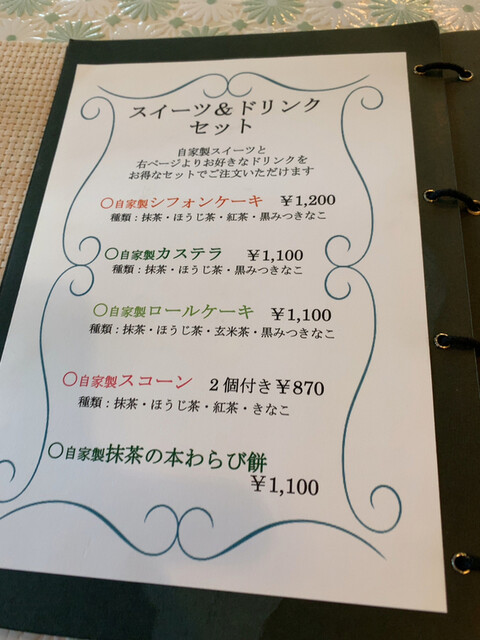 スイーツ&ドリンク
セット
自家製スイーツと
右ページよりお好きなドリンクを
お得なセットでご注文いただけます
〇自家製シフォンケーキ ￥1,200
種類：抹茶・ほうじ茶・紅茶・黒みつきなこ
〇自家製カステラ ￥1,100
種類：抹茶・ほうじ茶・黒みつきなこ
〇自家製ロールケーキ ￥1,100
種類：抹茶・ほうじ茶・玄米茶・黒みつきなこ
〇自家製スコーン 2個付き￥870
種類：抹茶・ほうじ茶・紅茶・きなこ
〇自家製抹茶の本わらび餅
￥1,100